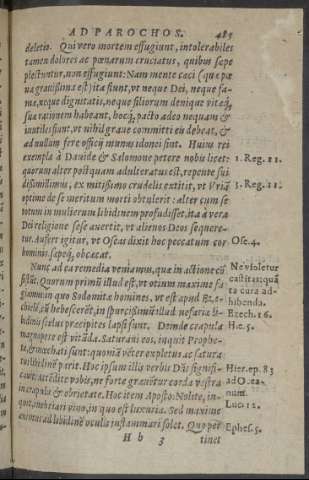 AD PAROCHOS. 485
deletio. Qui vero mortem effugiunt, intolerabiles
tamen dolores ac pœnarum cruciatus, quibus sæpe
plectuntur, non effugiunt: Nam mente cæci (quæ pœ
na gravissima est) ita fiunt, vt neque Dei, neque fa-
mæ, neque dignitatis, neque filiorum denique vitæq́;
suæ rationem habeant, hocq́; pacto adeo nequam &
inutiles fiunt, vt nihil graue committi eis debeat, &
ad nullum fere officij munus idonei sint. Huius rei
exempla à Dauide & Salomone petere nobis licet:
quorum alter postquam adulteratus est, repente sui
dissimillimus, ex mitissimo crudelis extitit, vt Vriã
optime de se meritum morti obtulerit: alter cum se
totum in mulierum libidinem profudisset, ita à vera
Dei religione sese auertit, vt alienos Deos sequere-
tur. Aufert igitur, vt Oseas dixit hoc peccatum cor
hominis, sæpeq́; obcæcat.
Nunc ad ea remedia veniamus, quæ in actione cõ
sistũt. Quorum primũ illud est, vt otium maxime fu
giamus in quo Sodomitæ homines, vt est apud Eze-
chielẽ, cũ hebescerẽt, in spurcissimũ illud nefariæ li-
bidinis scelus præcipites lapsi sunt. Deinde crapula
magnopere est vitãda. Saturaui eos, inquit Prophe-
ta, & mœchati sunt: quoniã vẽter expletus ac satura
libidinẽ parit. Hoc ipsum illis verbis Dñs signifi-
cauit: attẽdite vobis, ne forte grauẽtur corda vestra
in crapula & ebrietate. Hoc item Aposto: Nolite, in-
quit, inebriari vino, in quo est luxuria. Sed maxime
animus ad libidinẽ oculis inflammari solet. Quo per
H h 3 tinet
1. Reg. 11.
3. Reg. 11.
Ose. 4.
Ne violetur
castitas: quã
ta cura ad-
hibenda.
Ezech. 16.
Hier. ep. 83
ad Ocea-
num.
Luc. 12.
Ephes. 5.